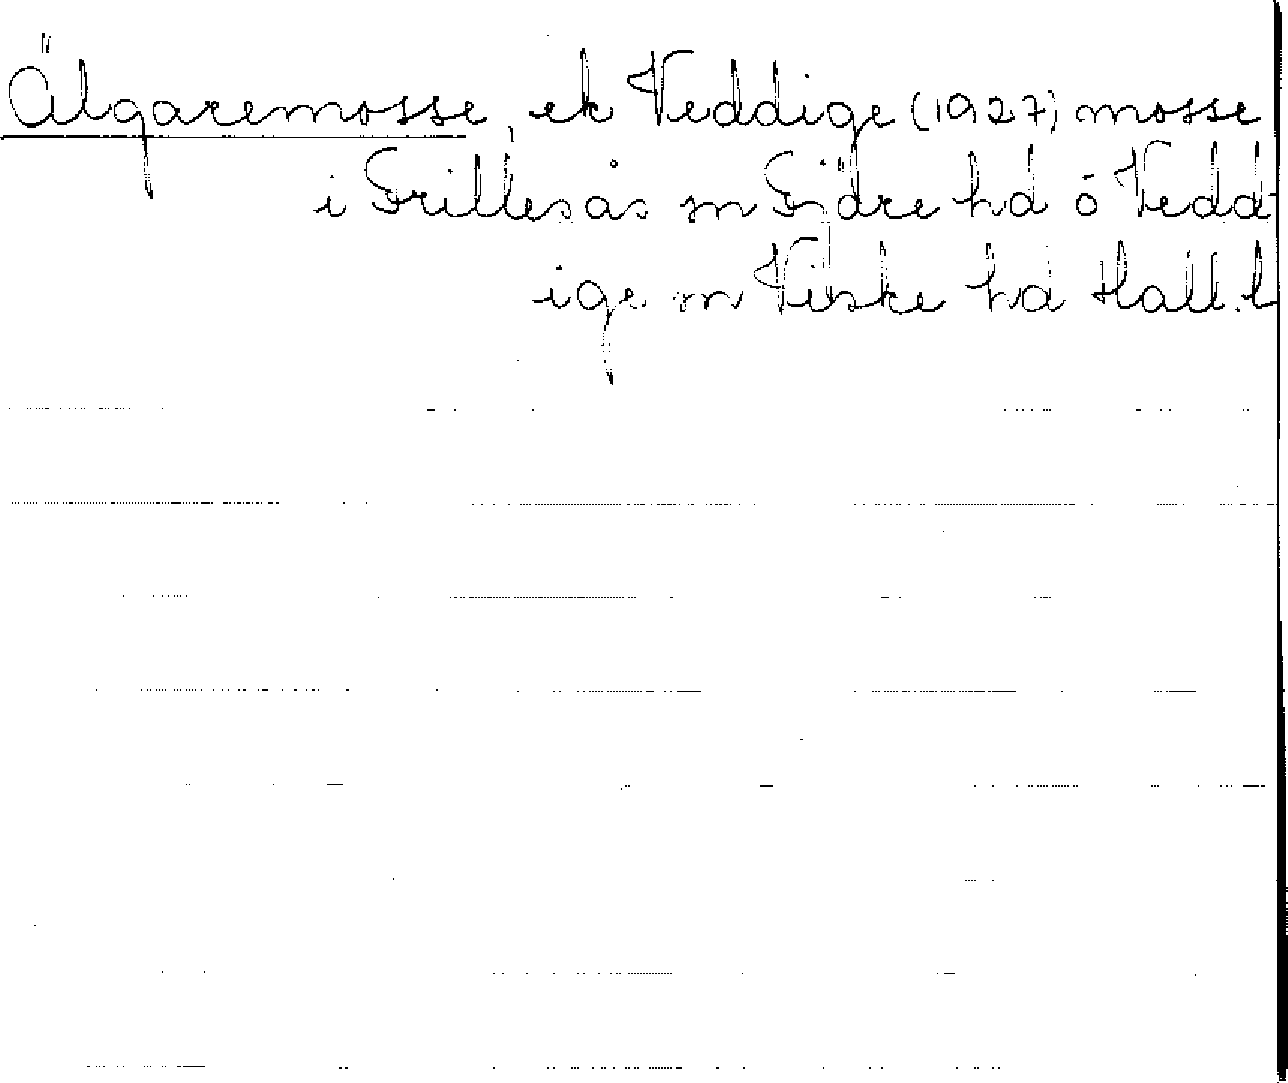 Älgaremosse, ek Veddige (1927) mosse
i Frillesås sn Fjäre hd ö Vedd
ige sn Viske hd Hall. l